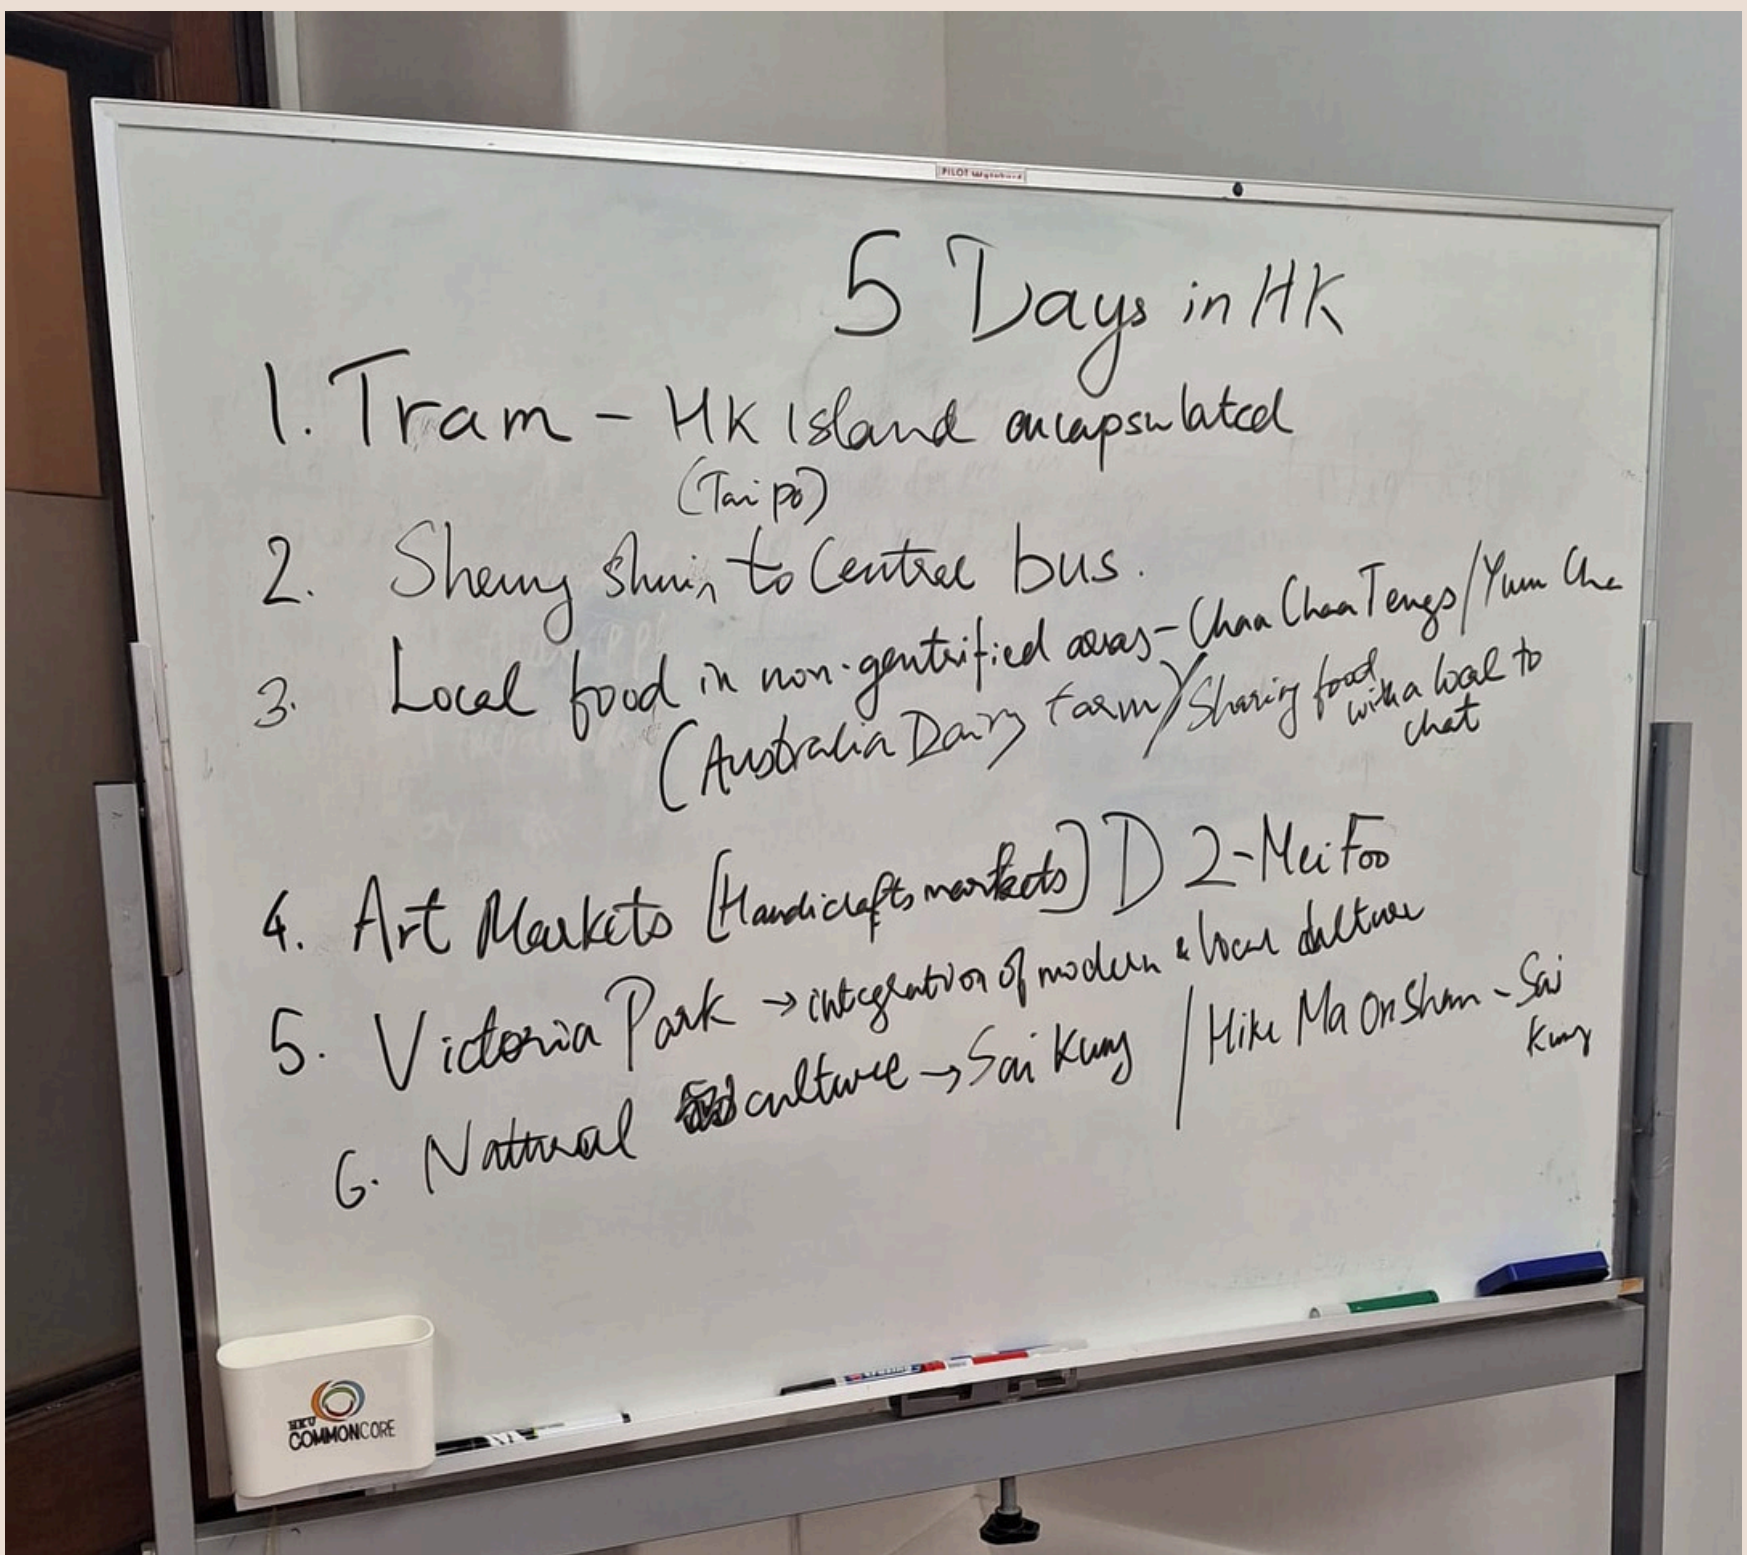 PILOT Wyteboard
5 Days in HK
1. Tram - HK Island encapsulated
(Tai po)
2. Sheung Shui to Central bus.
3. Local food in non-gentrified areas - Chaa Chaan Tengs / Yum Cha
(Australia Dairy Farm) / Sharing food
with a local to
chat
4. Art Markets [Handicrafts markets] D 2 - Mei Foo
5. Victoria Park → integration of modern & local culture
6. Natural culture → Sai Kung / Hike Ma On Shan - Sai
Kung
HKU
COMMONCORE